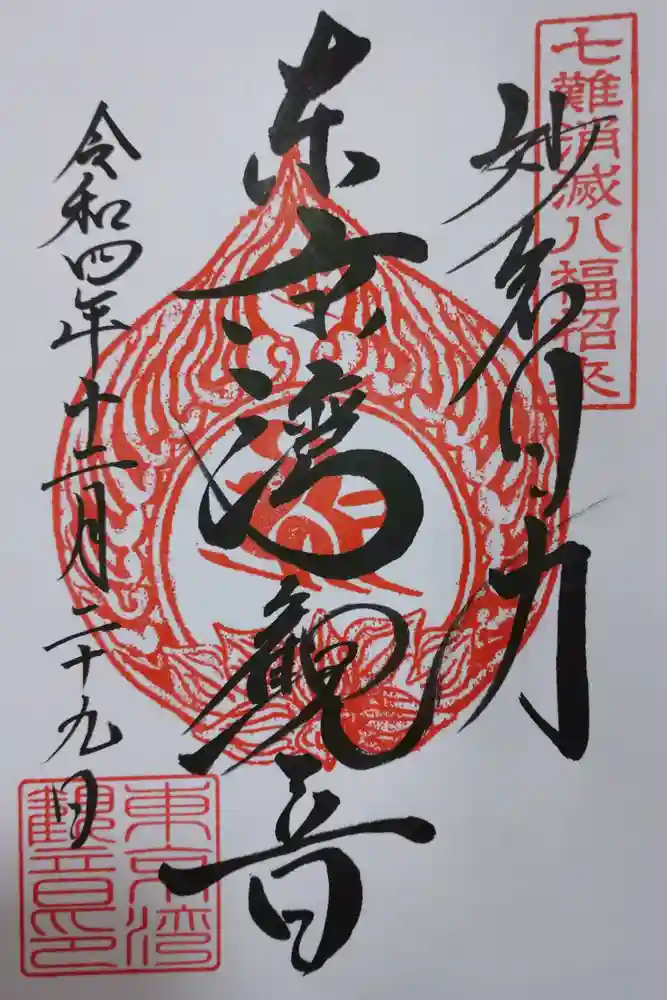 七難消滅八福招来
妙智力
東京湾観音
令和四年十二月二十九日
東京湾
観音印